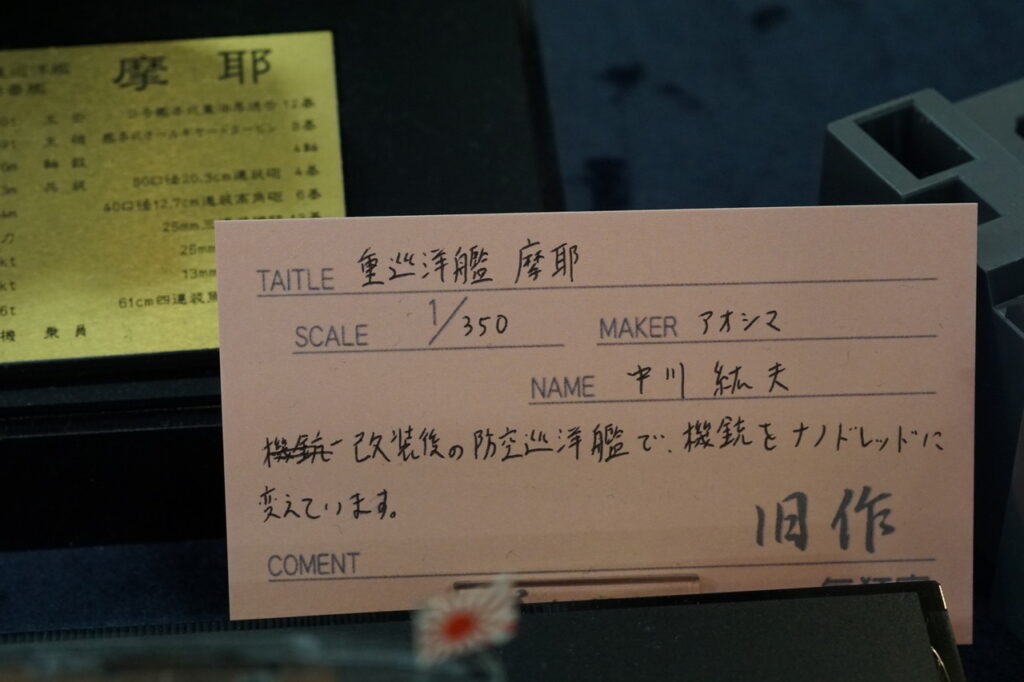 摩耶
主缶 ロ号艦本式重油専焼缶 12基
軸数 4軸
兵装 50口径20.3cm連装砲 4基
40口径12.7cm連装高角砲 6基
25mm
25mm
13mm
61cm四連装
乗員
TAITLE 重巡洋艦 摩耶
SCALE 1/350 MAKER アオシマ
NAME 中川 紘夫
機銃 改装後の防空巡洋艦で、機銃をナノドレッドに
変えています。
旧作
COMENT